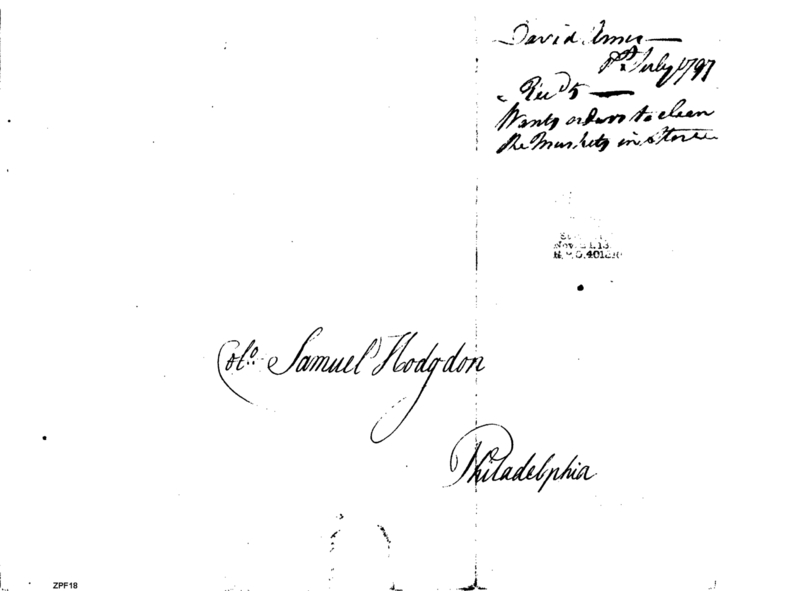 David Ames
8th July 1797
Rec'd 5
Wants orders to clean
the Muskets in Store
Nov. 21.13
401230
Colo. Samuel Hodgdon
Philadelphia
ZPF18